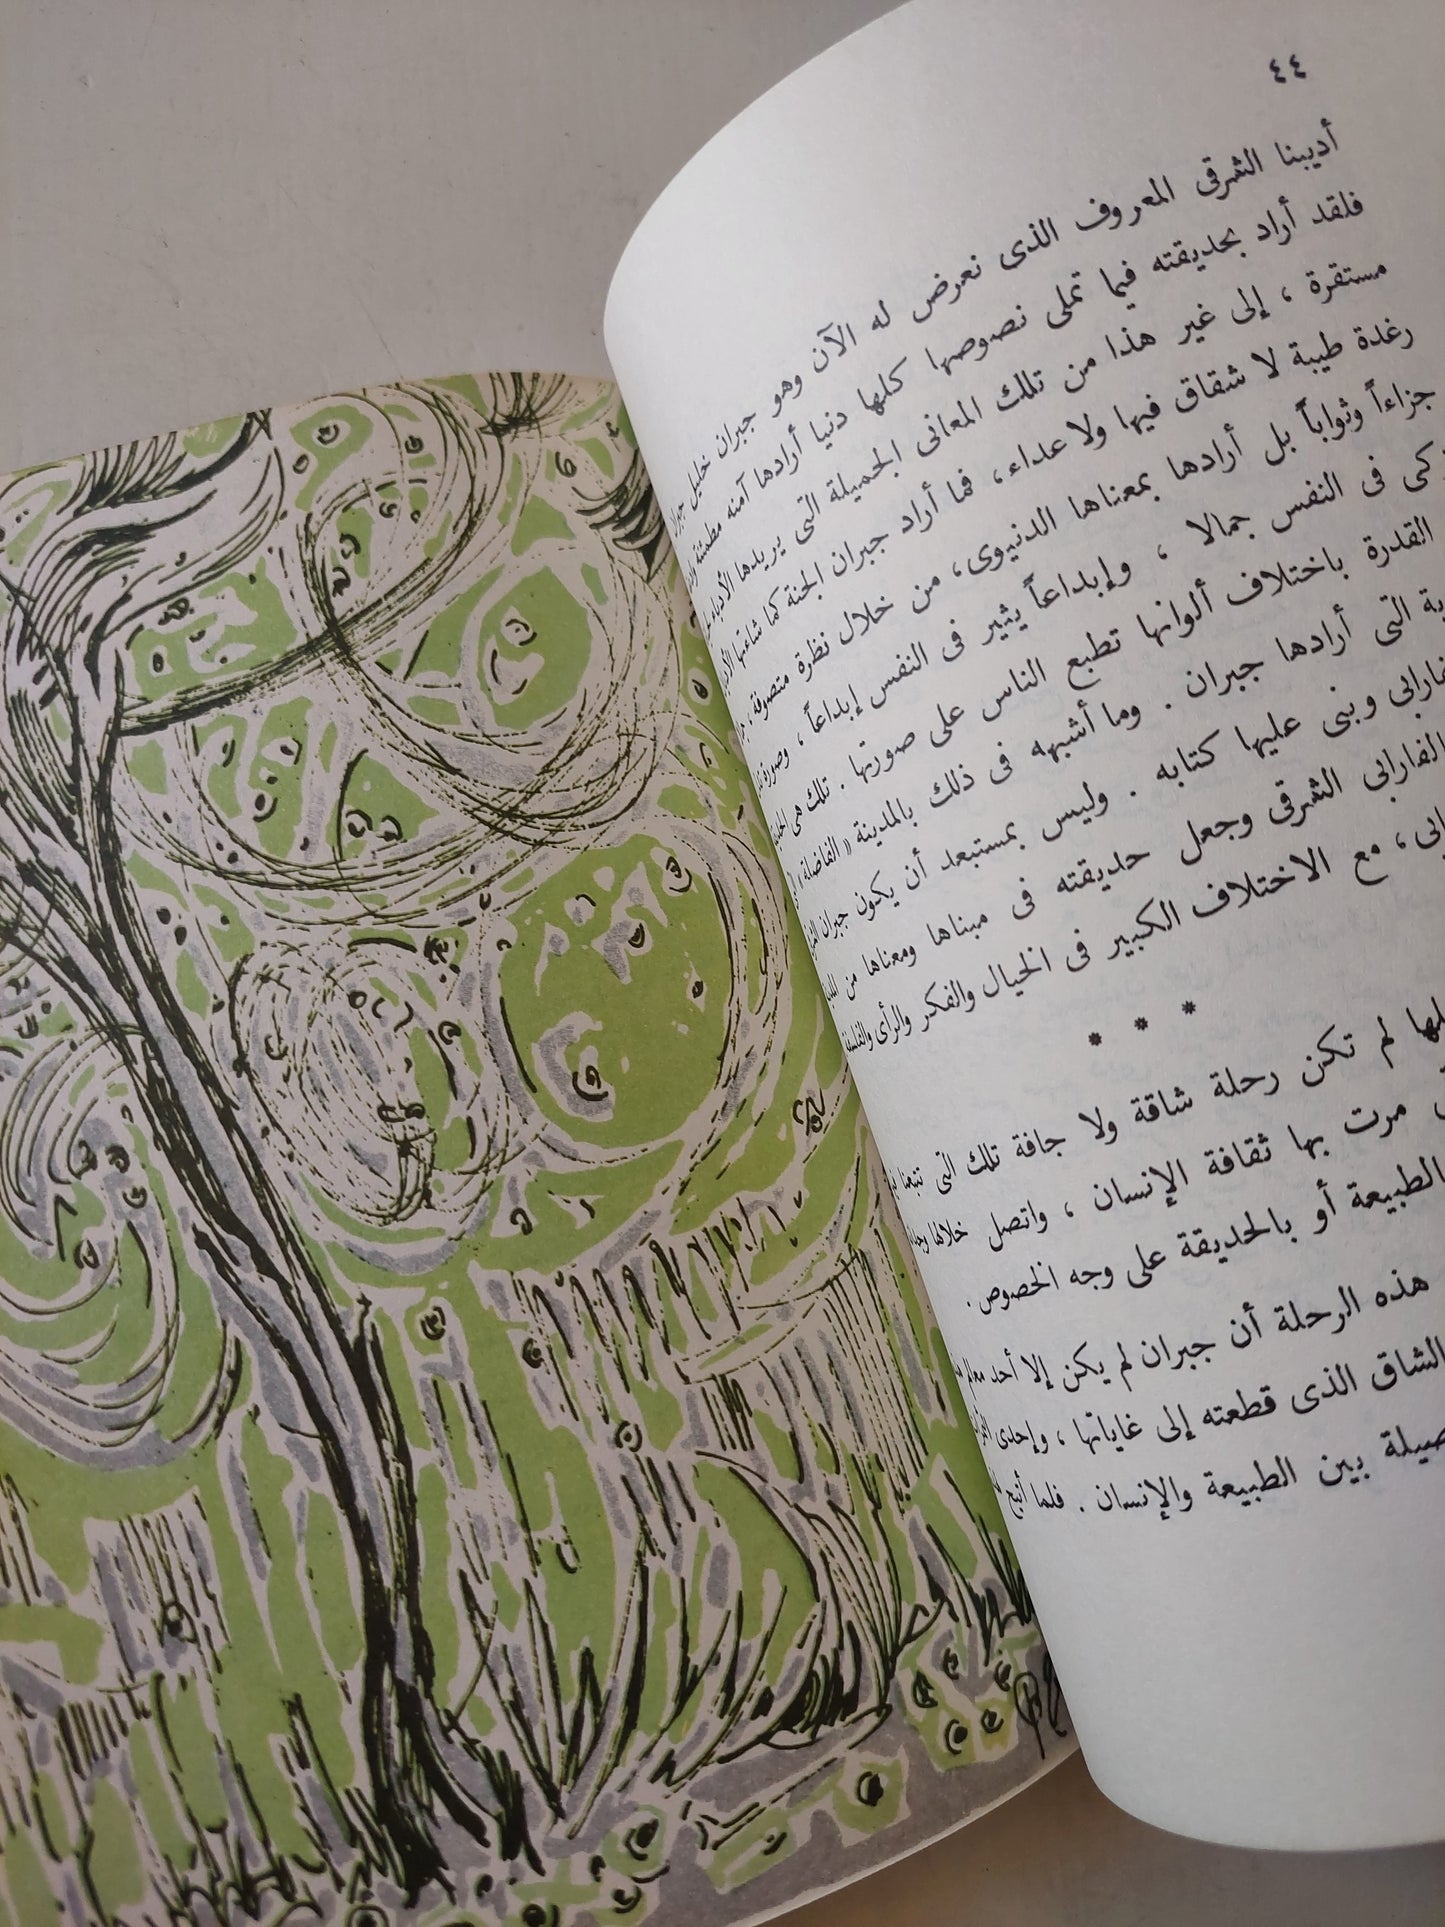 ٤٤
أديبنا الشرقى المعروف الذى نعرض له الآن وهو جبران خليل جبران
فلقد أراد بحديقته فيما تملى نصوصها كلها دنيا أرادها آمنه مطمئنة
مستقرة ، إلى غير هذا من تلك المعانى الجميلة التى يريدها الأدباء
رغدة طيبة لا شقاق فيها ولا عداء ، فما أراد جبران الجنة كما شاءتها
جزاءاً وثواباً بل أرادها بمعناها الدنيوى ، من خلال نظرة متصوفة ،
فى النفس جمالا ، وإبداعاً يثير فى النفس إبداعاً ، وصورة
القدرة باختلاف ألوانها تطبع الناس على صورتها . تلك هى
التى أرادها جبران . وما أشبهه فى ذلك بالمدينة « الفاضلة »
وبنى عليها كتابه . وليس بمستبعد أن يكون جبران
الفارابى الشرقى وجعل حديقته فى مبناها ومعناها من
، مع الاختلاف الكبير فى الخيال والفكر والرأى والفلسفة
* * *
لم تكن رحلة شاقة ولا جافة تلك التى تتبعنا
مرت بها ثقافة الإنسان ، واتصل خلالها
بالطبيعة أو بالحديقة على وجه الخصوص .
هذه الرحلة أن جبران لم يكن إلا أحد معالم
الشاق الذى قطعته إلى غاياتها ، وإحدى
بين الطبيعة والإنسان . فلما أتيح